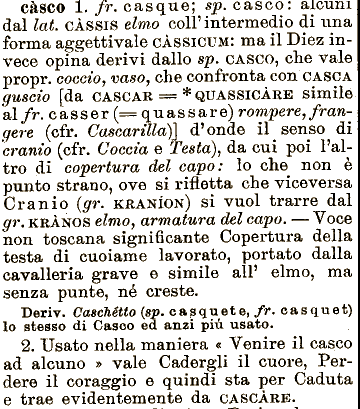 càsco 1. fr. casque; sp. casco: alcuni
dal lat. CÀSSIS elmo coll'intermedio di una
forma aggettivale CÀSSICUM: ma il Diez in-
vece opina derivi dallo sp. CASCO, che vale
propr. coccio, vaso, che confronta con CASCA
guscio [da CASCAR = *QUASSICÀRE simile
al fr. casser (= quassare) rompere, fran-
gere (cfr. Cascarilla)] d'onde il senso di
cranio (cfr. Coccia e Testa), da cui poi l'al-
tro di copertura del capo: lo che non è
punto strano, ove si rifletta che viceversa
Cranio (gr. KRANÍON) si vuol trarre dal
gr. KRÀNOS elmo, armatura del capo. — Voce
non toscana significante Copertura della
testa di cuoiame lavorato, portato dalla
cavalleria grave e simile all' elmo, ma
senza punte, né creste.
Deriv. Caschétto (sp. casquete, fr. casquet)
lo stesso di Casco ed anzi piú usato.
2. Usato nella maniera « Venire il casco
ad alcuno » vale Cadergli il cuore, Per-
dere il coraggio e quindi sta per Caduta
e trae evidentemente da CASCÀRE.